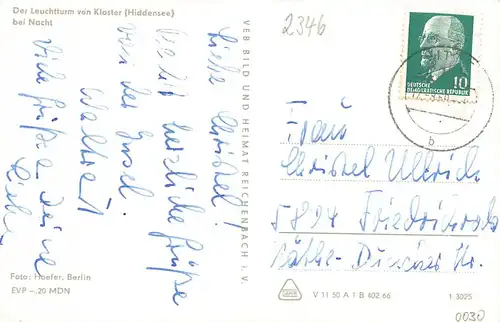 Der Leuchtturm von Kloster (Hiddensee)
bei Nacht
Liebe Christel!
herzliche Grüße
von der Insel.
Waltraut
Viele Grüße Deine
Foto: Hoefer, Berlin
EVP –,20 MDN
VEB BILD UND HEIMAT REICHENBACH i. V.
2346
DEUTSCHE
DEMOKRATISCHE REPUBLIK
10
b
Frau
Christel Ullrich
Käthe-Duncker
V 11 50 A 1 B 402.66
1 3025
0030